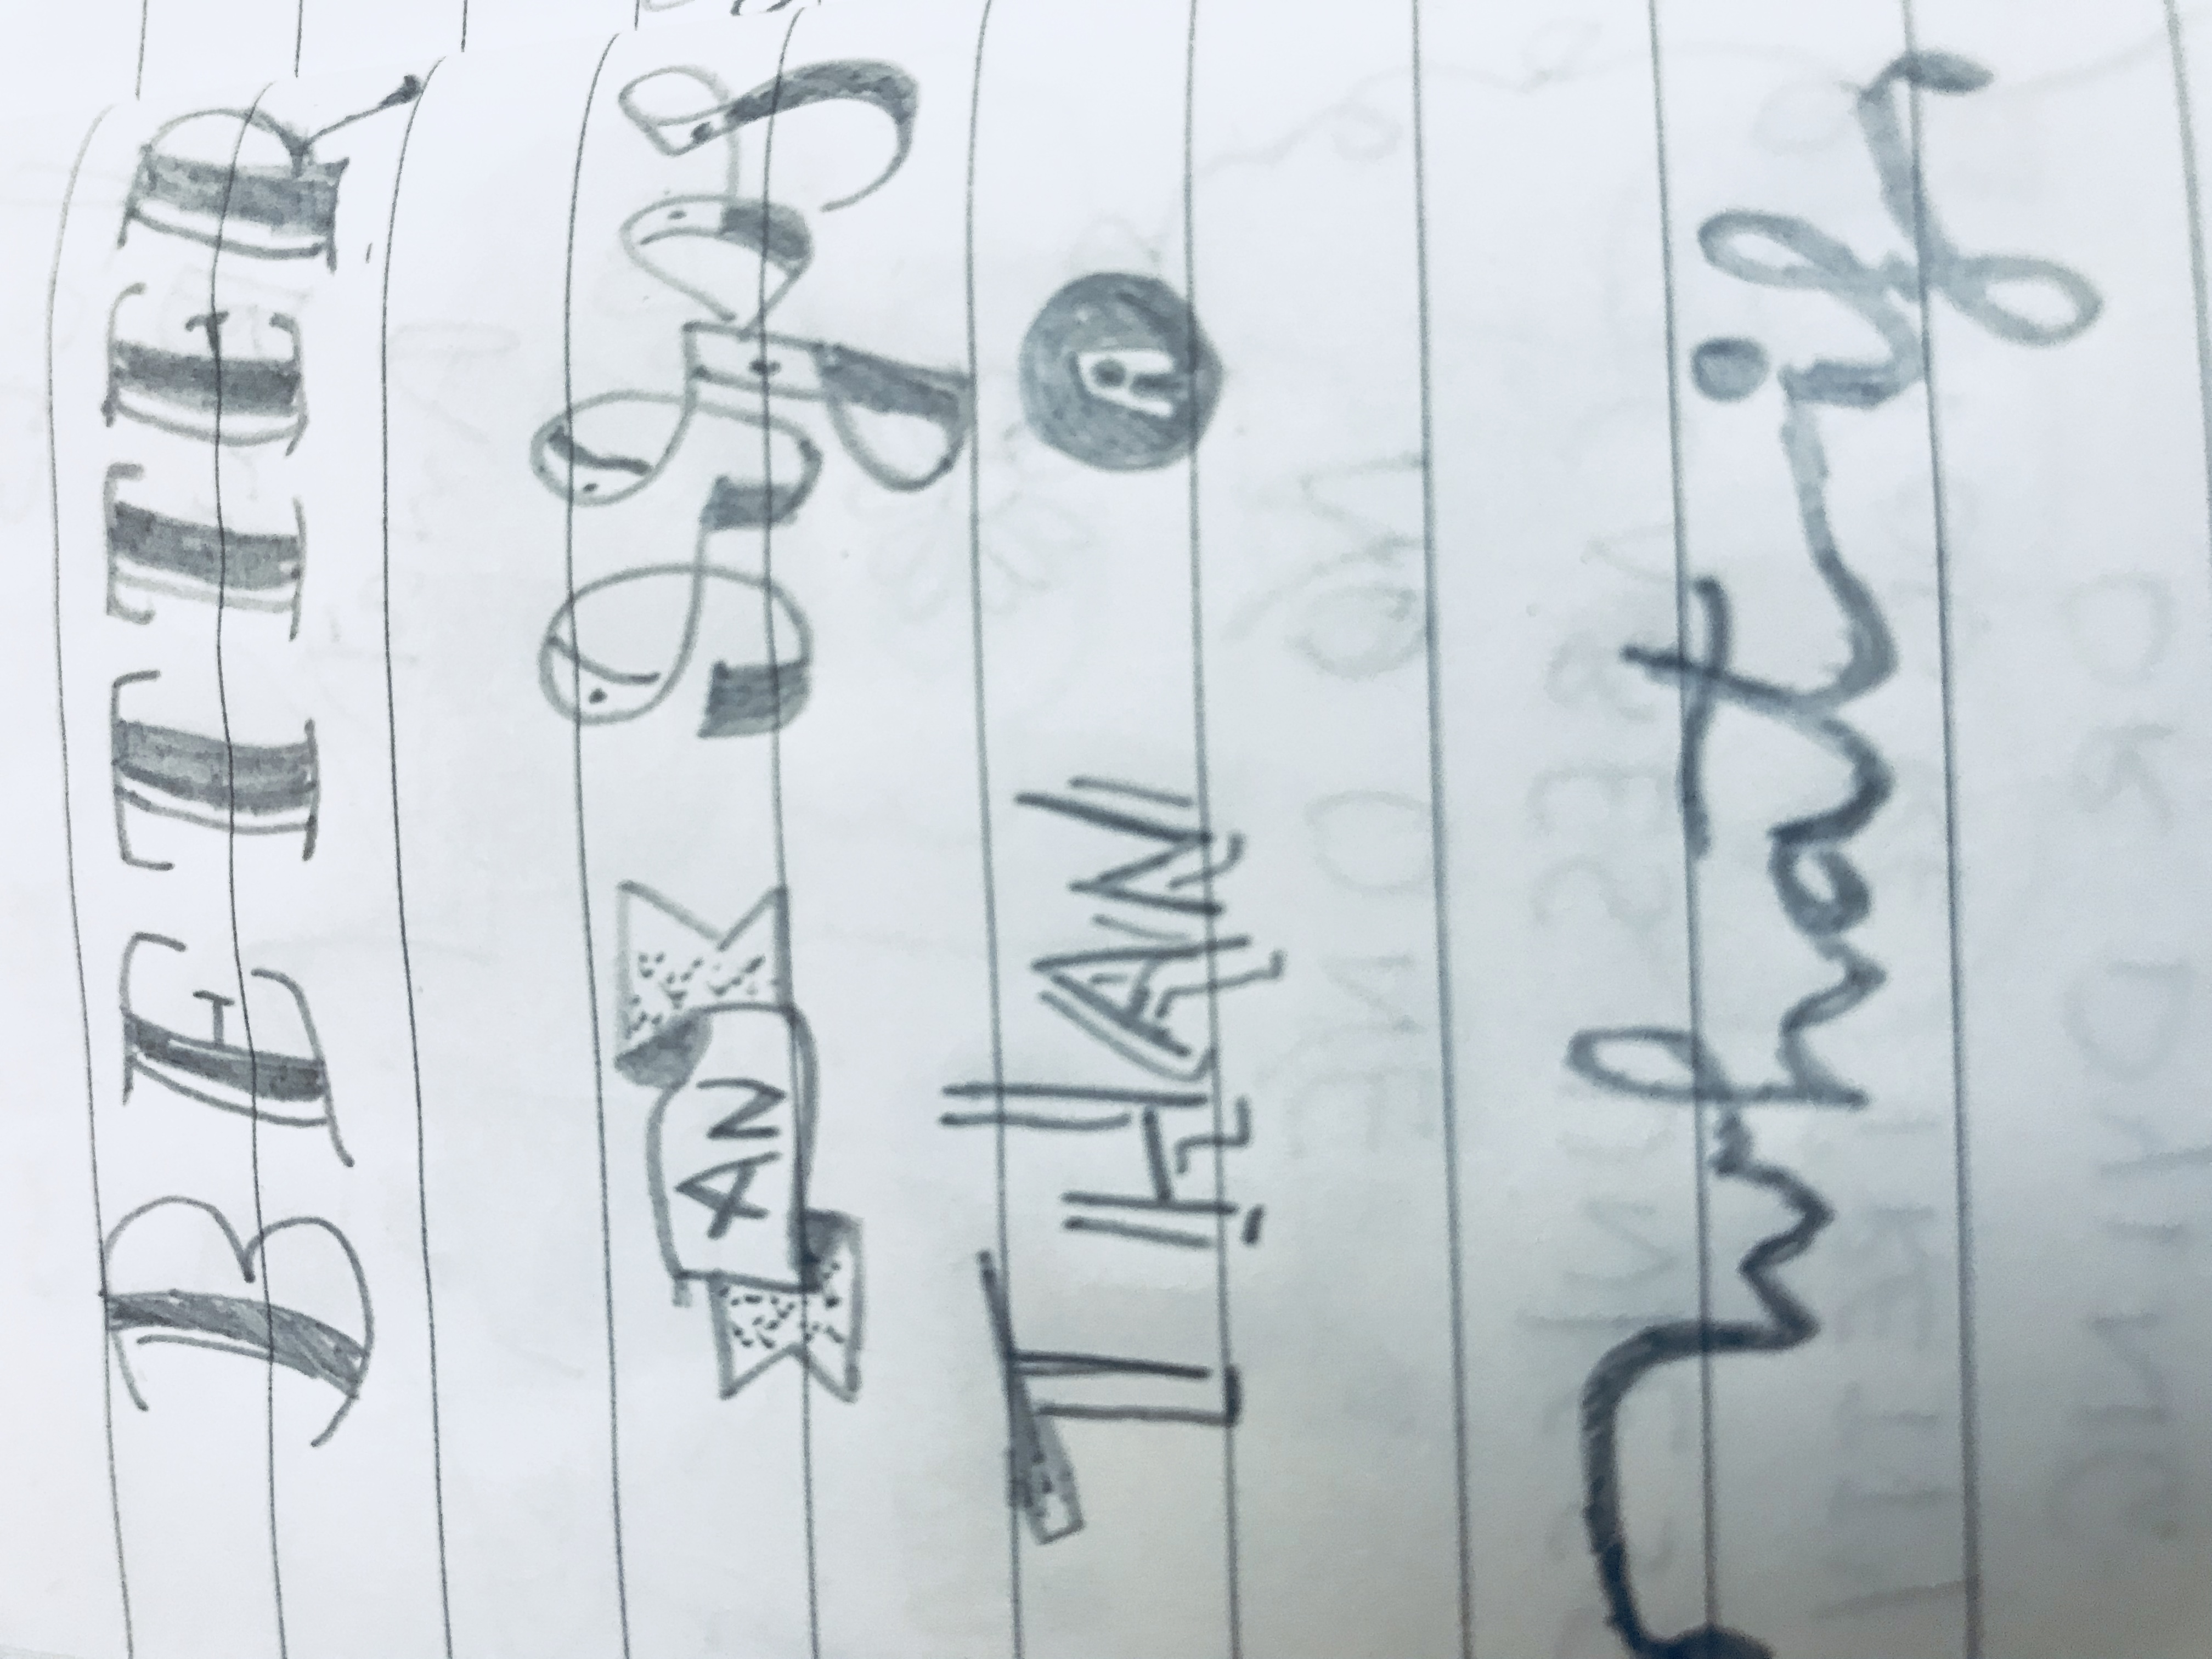 BETTER
AN oops
THAN A
what if